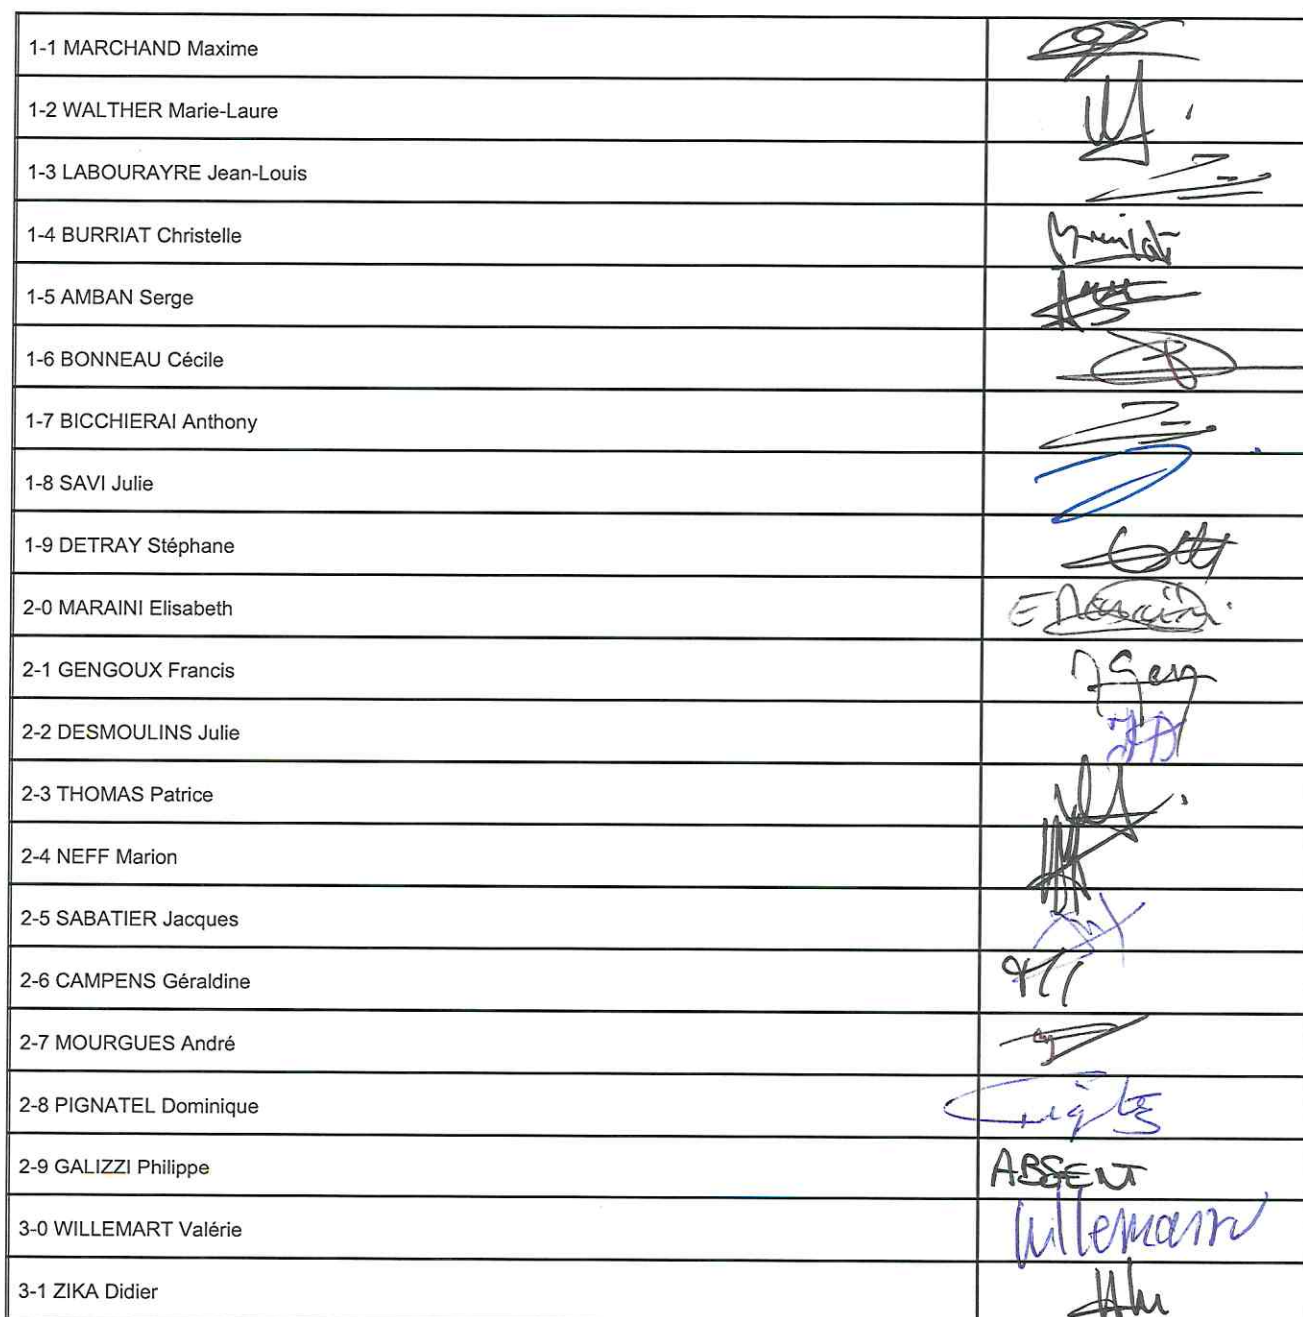 1-1 MARCHAND Maxime
1-2 WALTHER Marie-Laure
1-3 LABOURAYRE Jean-Louis
1-4 BURRIAT Christelle
1-5 AMBAN Serge
1-6 BONNEAU Cécile
1-7 BICCHIERAI Anthony
1-8 SAVI Julie
1-9 DETRAY Stéphane
2-0 MARAINI Elisabeth
2-1 GENGOUX Francis
2-2 DESMOULINS Julie
2-3 THOMAS Patrice
2-4 NEFF Marion
2-5 SABATIER Jacques
2-6 CAMPENS Géraldine
2-7 MOURGUES André
2-8 PIGNATEL Dominique
2-9 GALIZZI Philippe ABSENT
3-0 WILLEMART Valérie
3-1 ZIKA Didier